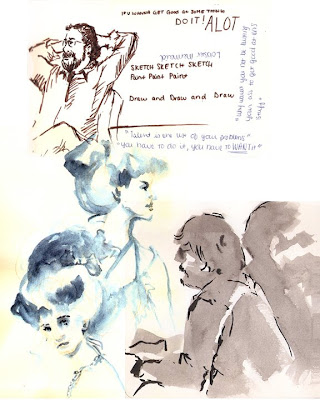 IF U WANNA GET GOOD AT SOMETHING
DO IT! ALOT
SKETCH SKETCH SKETCH
Paint Paint Paint
Draw and Draw and Draw
"Talent is the least of your problems"
"you have to do it, you have to WANT it"
"why would you not be busting
your ass to get good at this
stuff"